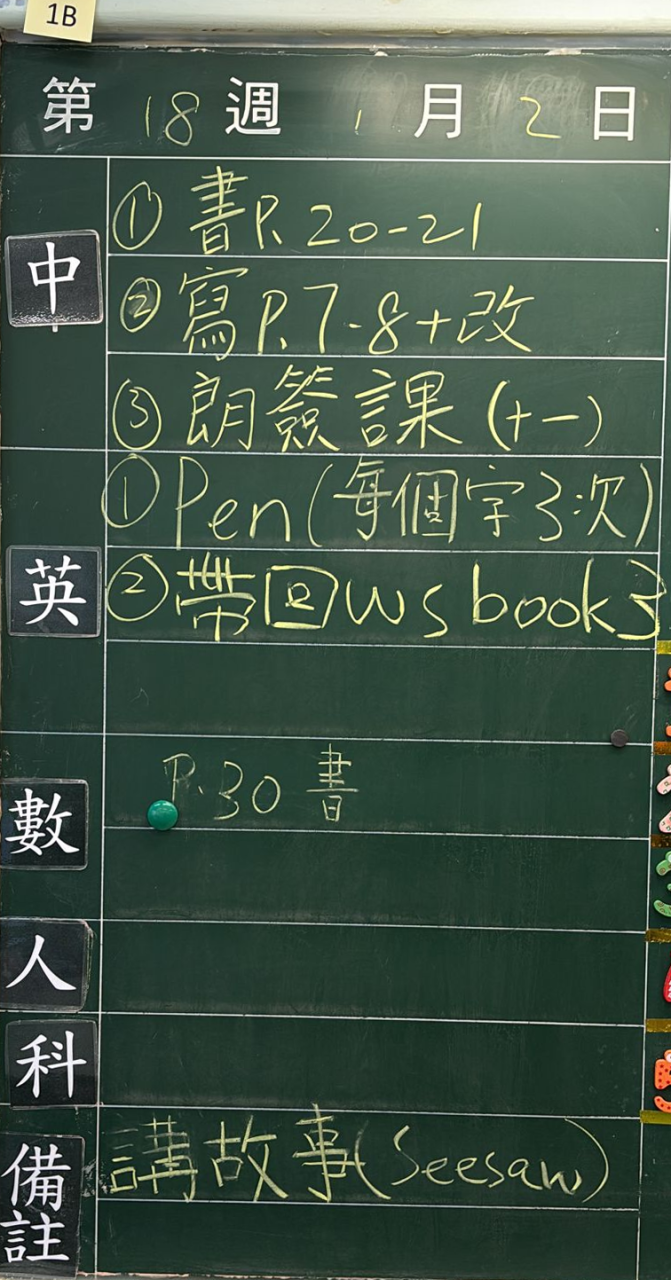 1B
第 18 週 1 月 2 日
中
① 書P. 20-21
② 寫P. 7-8+改
③ 朗簽課(十一)
英
① Pen(每個字3次)
② 帶回 WS book3
數
P.30 書
人
科
備註
講故事(Seesaw)